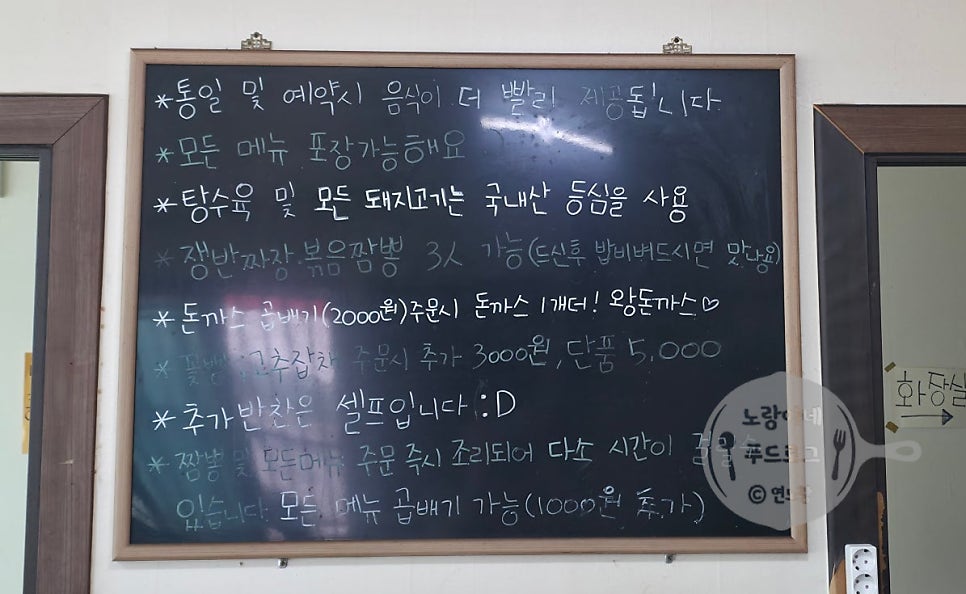 *통일 및 예약시 음식이 더 빨리 제공됩니다
*모든 메뉴 포장가능해요
*탕수육 및 모든 돼지고기는 국내산 등심을 사용
*쟁반짜장.볶음짬뽕 3人 가능(드신후 밥비벼드시면 맛나용)
*돈까스 곱배기(2000원)주문시 돈까스 1개더! 왕돈까스♡
*꽃빵:고추잡채 주문시 추가 3000원, 단품 5,000
*추가반찬은 셀프입니다 :D
*짬뽕 및 모든메뉴 주문 즉시 조리되어 다소 시간이 걸릴수
있습니다 모든 메뉴 곱배기 가능(1000원 추가)
화장실
푸드로그